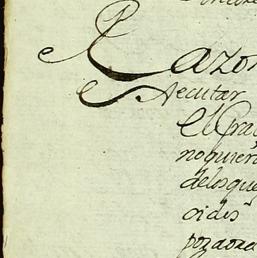 Razon
Executar
El Gra
no quier
de los que
oidis
por aora